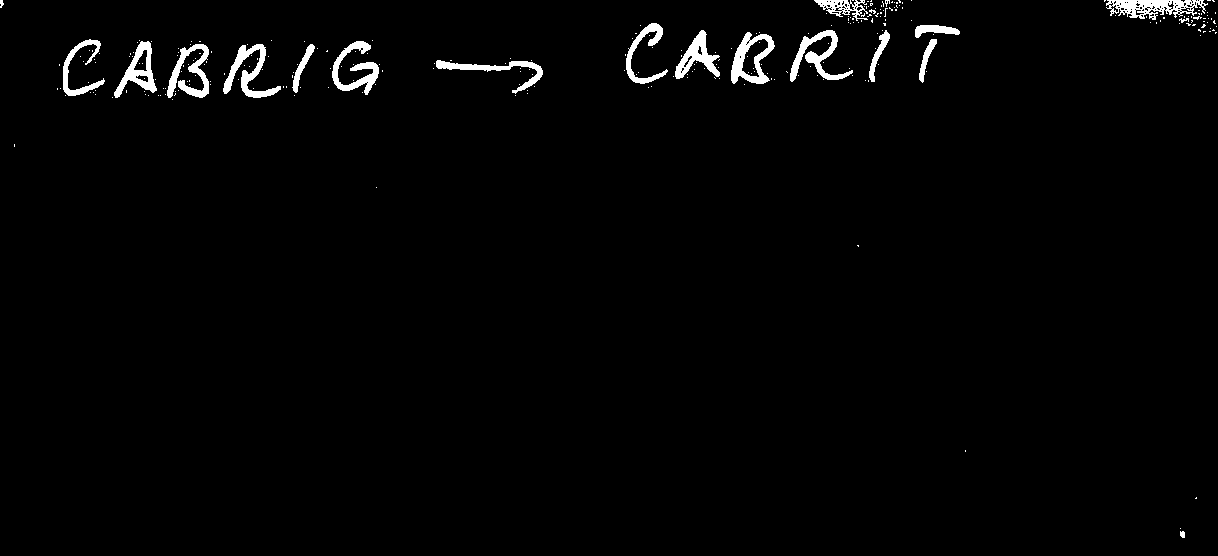 CABRIG → CABRIT